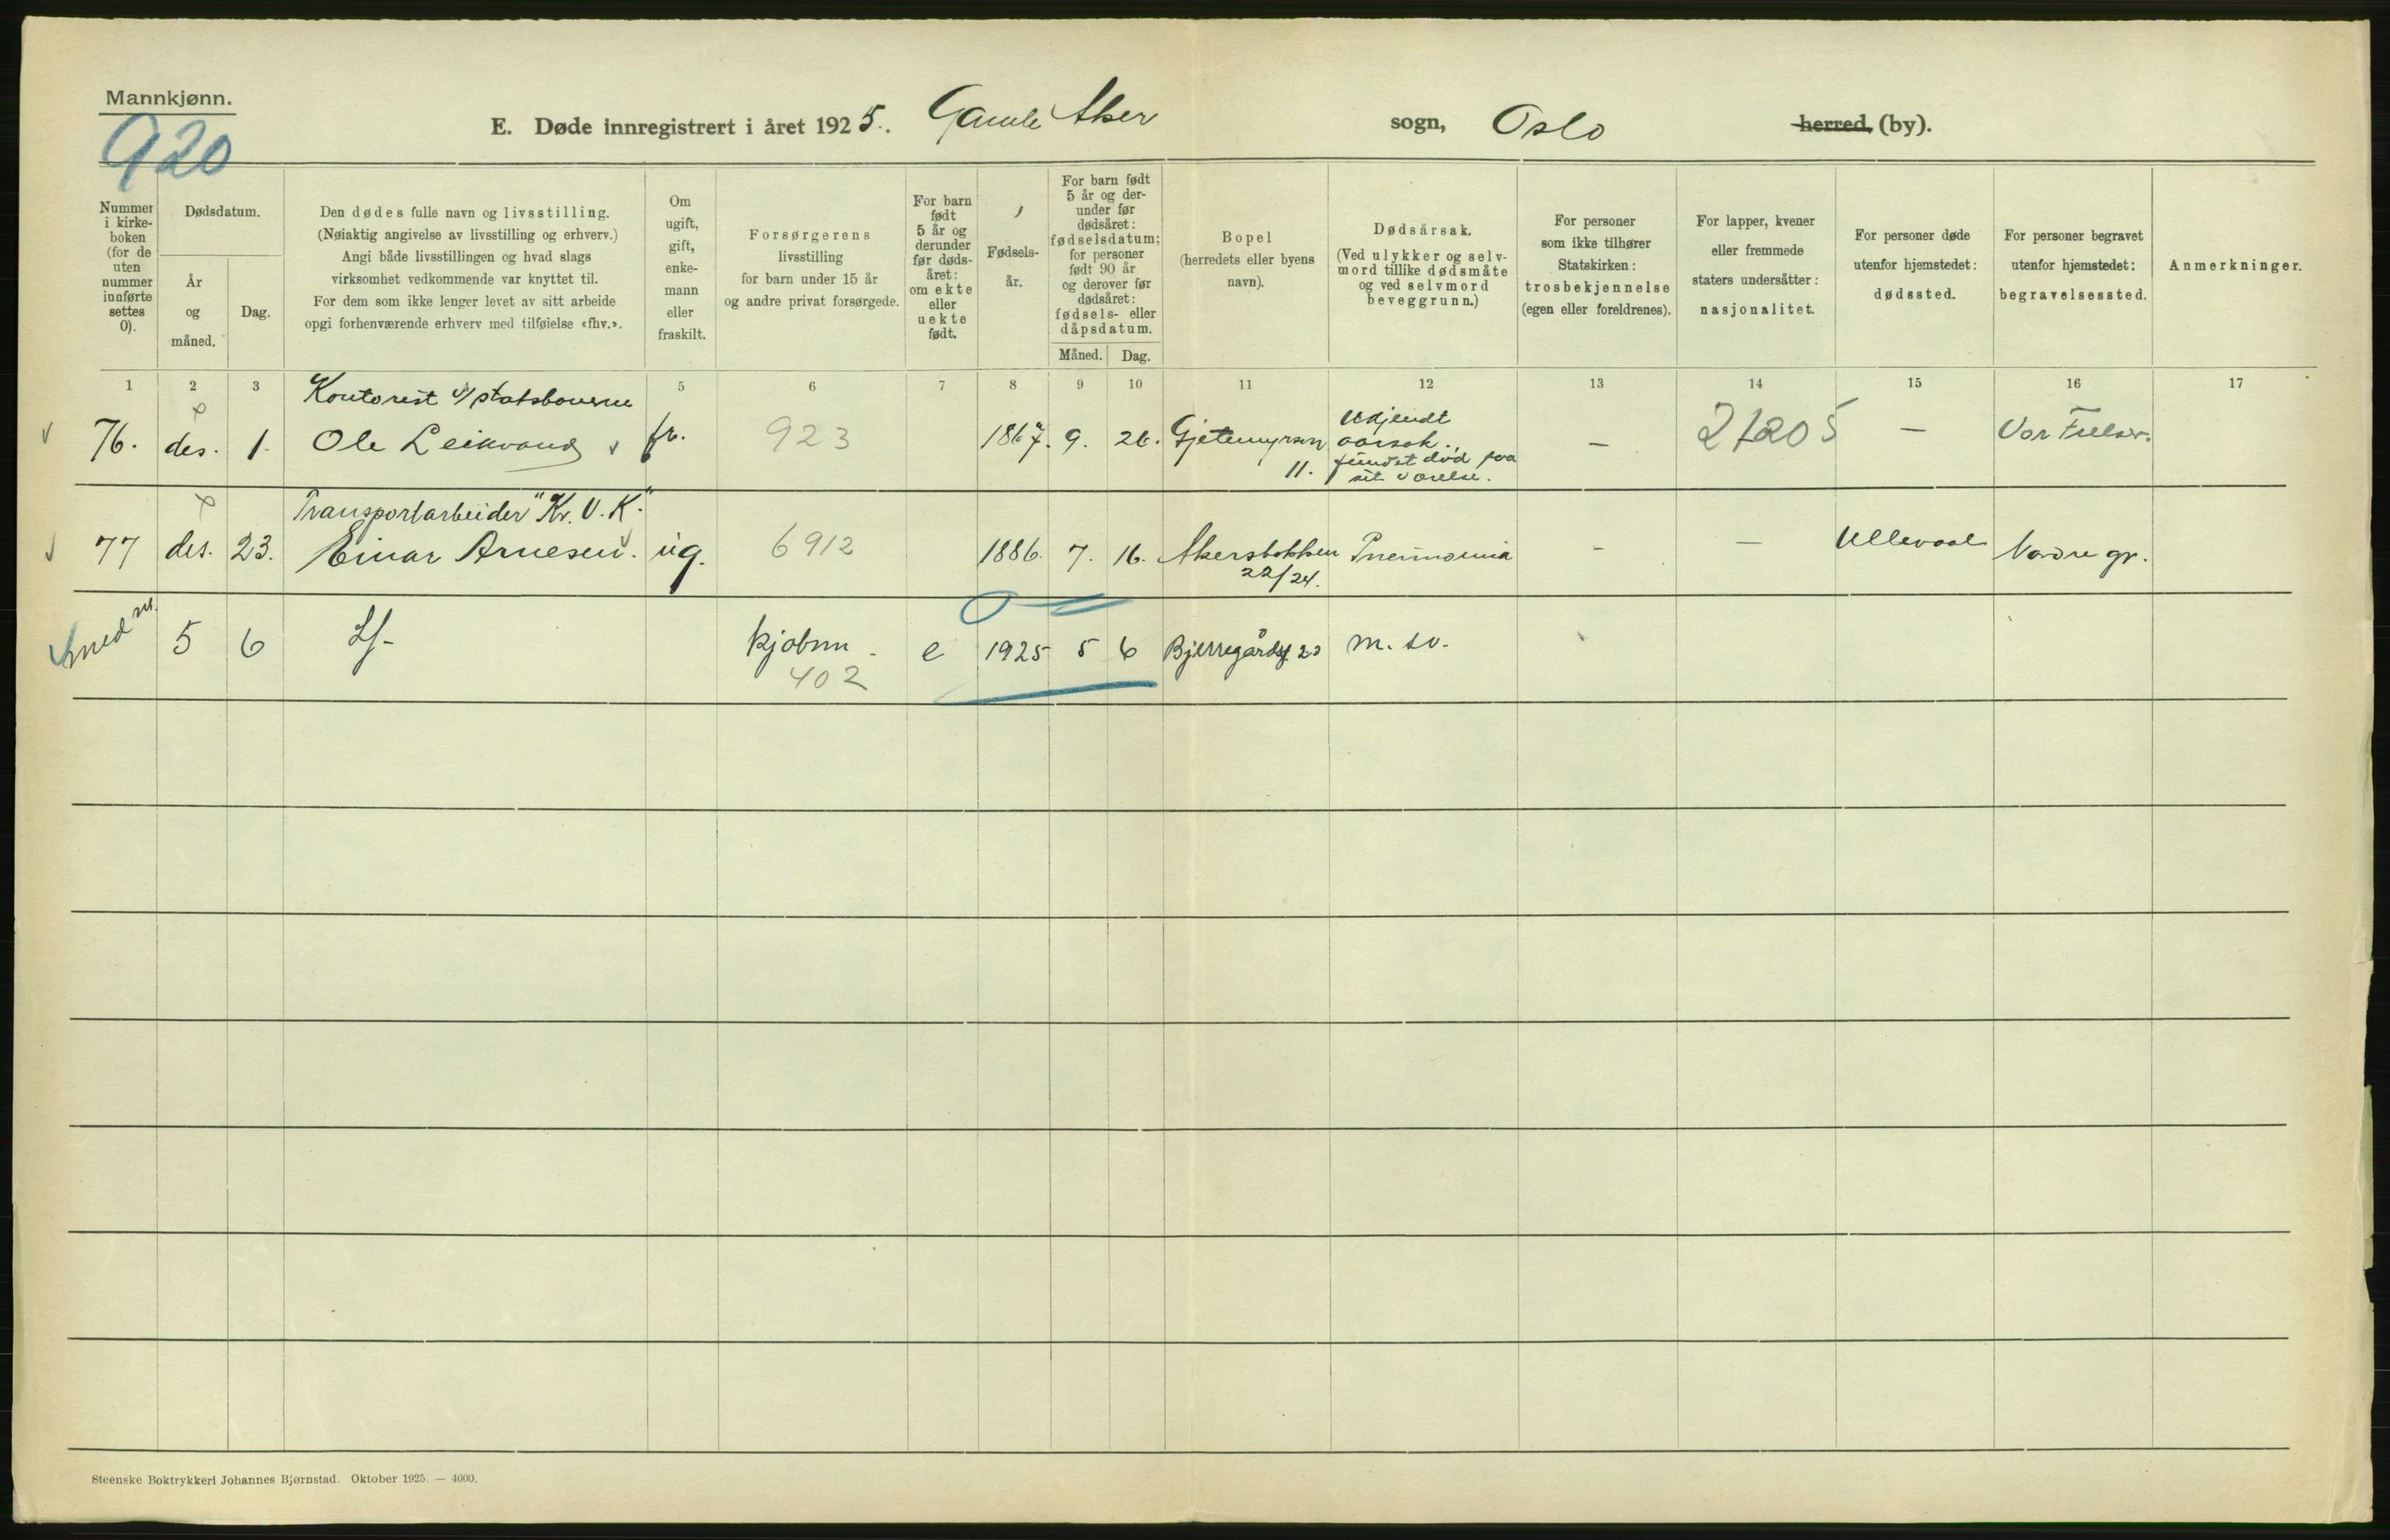 Mannkjønn.
920
E. Døde innregistrert i året 1925. Gamle Aker sogn, Oslo herred, (by).
Nummer i kirke-boken (for de uten nummer innførte settes 0).
Dødsdatum.
År og måned.
Dag.
Den dødes fulle navn og livsstilling.
(Nøiaktig angivelse av livsstilling og erhverv.)
Angi både livsstillingen og hvad slags
virksomhet vedkommende var knyttet til.
For dem som ikke lenger levet av sitt arbeide
opgi forhenværende erhverv med tilføielse «fhv.».
Om ugift, gift, enke-mann eller fraskilt.
Forsørgerens
livsstilling
for barn under 15 år
og andre privat forsørgede.
For barn født 5 år og derunder før døds-året: om ekte eller uekte født.
Fødsels-år.
For barn født 5 år og der-under før dødsåret: fødselsdatum; for personer født 90 år og derover før dødsåret: fødsels- eller dåpsdatum.
Måned.
Dag.
Bopel
(herredets eller byens
navn).
Dødsårsak.
(Ved ulykker og selv-
mord tillike dødsmåte
og ved selvmord
beveggrunn.)
For personer
som ikke tilhører
Statskirken:
trosbekjennelse
(egen eller foreldrenes).
For lapper, kvener
eller fremmede
staters undersåtter:
nasjonalitet.
For personer døde
utenfor hjemstedet:
dødssted.
For personer begravet
utenfor hjemstedet:
begravelsessted.
Anmerkninger.
1 2 3 5 6 7 8 9 10 11 12 13 14 15 16 17
Kontorist v/statsbanerne
76. des. 1. Ole Leikvang fr. 923 1867. 9. 26. Gjetemyrsvn 11. Ukjendt aarsak. fundet død paa sit værelse. — 21205 — Vor Frelser.
Transportarbeider "Kr. V. K."
77 des. 23. Einar Arnesen. ug. 6912 1886. 7. 16. Akersbakken 22/24. Pneumonia - — Ullevaal Nordre gr.
5 6 Lf- kjøbm. 402 e 1925 5 6 Bjerregårdsg. 20 m. sv.
Steenske Boktrykkeri Johannes Bjørnstad. Oktober 1925. — 4000.